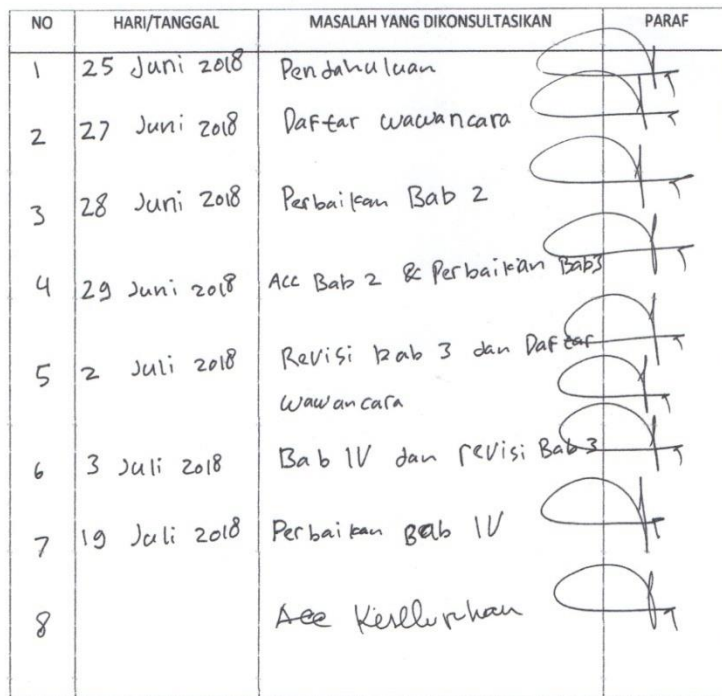 NO HARI/TANGGAL MASALAH YANG DIKONSULTASIKAN PARAF
1 25 Juni 2018 Pendahuluan
2 27 Juni 2018 Daftar wawancara
3 28 Juni 2018 Perbaikan Bab 2
4 29 Juni 2018 Acc Bab 2 & Perbaikan Bab3
5 2 Juli 2018 Revisi bab 3 dan Daftar
wawancara
6 3 Juli 2018 Bab IV dan revisi Bab 3
7 19 Juli 2018 Perbaikan Bab IV
8 Acc